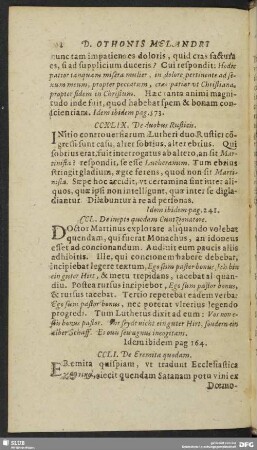 D. OTHONIS MELANDRI
nunc tam impatiens es doloris, quid cras factura
es, si ad supplicium duceris? Cui respondit: Hodie
patior tanquam misera mulier, in dolore pertinente ad se-
xum meum, propter peccatum, cras patiar ut Christiana,
propter fidem in Christum. Hæc tanta animi magni-
tudo inde fuit, quod habebat spem & bonam con-
scientiam. Idem ibidem pag. 373.
CCXLIX. De duobus Rusticis.
INitio controversiarum Lutheri duo Rustici con-
gressi sunt casu, alter sobrius, alter ebrius. Qui
sobrius erat, fuit interrogatus ab altero, an sit Mar-
tinista? respondit, se esse Lutheranum. Tum ebrius
stringit gladium, ægre ferens, quod non sit Marti-
nista. Sæpe hoc accidit, ut certamina sint inter ali-
quos, qui ipsi non intelligunt, qua inter se di-
gladiantur. Dilabuntur à re ad personas.
Idem ibidem pag. 241.
CCL. De inepto quodam Concionatore.
DOctor Martinus explorare aliquando volebat
quendam, qui fuerat Monachus, an idoneus
esset ad concionandum. Audivit eum paucis aliis
adhibitis. Ille, qui concionem habere debebat,
incipiebat legere textum, Ego sum pastor bonus, Ich bin
ein guter Hirt, & metu trepidans, tacebat aliquan-
diu. Postea rursus incipiebat, Ego sum pastor bonus,
& rursus tacebat. Tertio repetebat eadem verba:
Ego sum pastor bonus, nec poterat ulterius legendo
progredi. Tum Lutherus dixit ad eum: Vos non e-
stis bonus pastor. Ihr seyd nicht ein guter Hirt, sondern ein
alber Schaff. Et onus seu agnus incogitans.
Idem ibidem pag 164.
CCLI. De Eremita quodam.
ERemita quispiam, ut tradunt Ecclesiastica
ejecit quendam Satanam potu vini ex
Dæmo-
SLUB
DFG